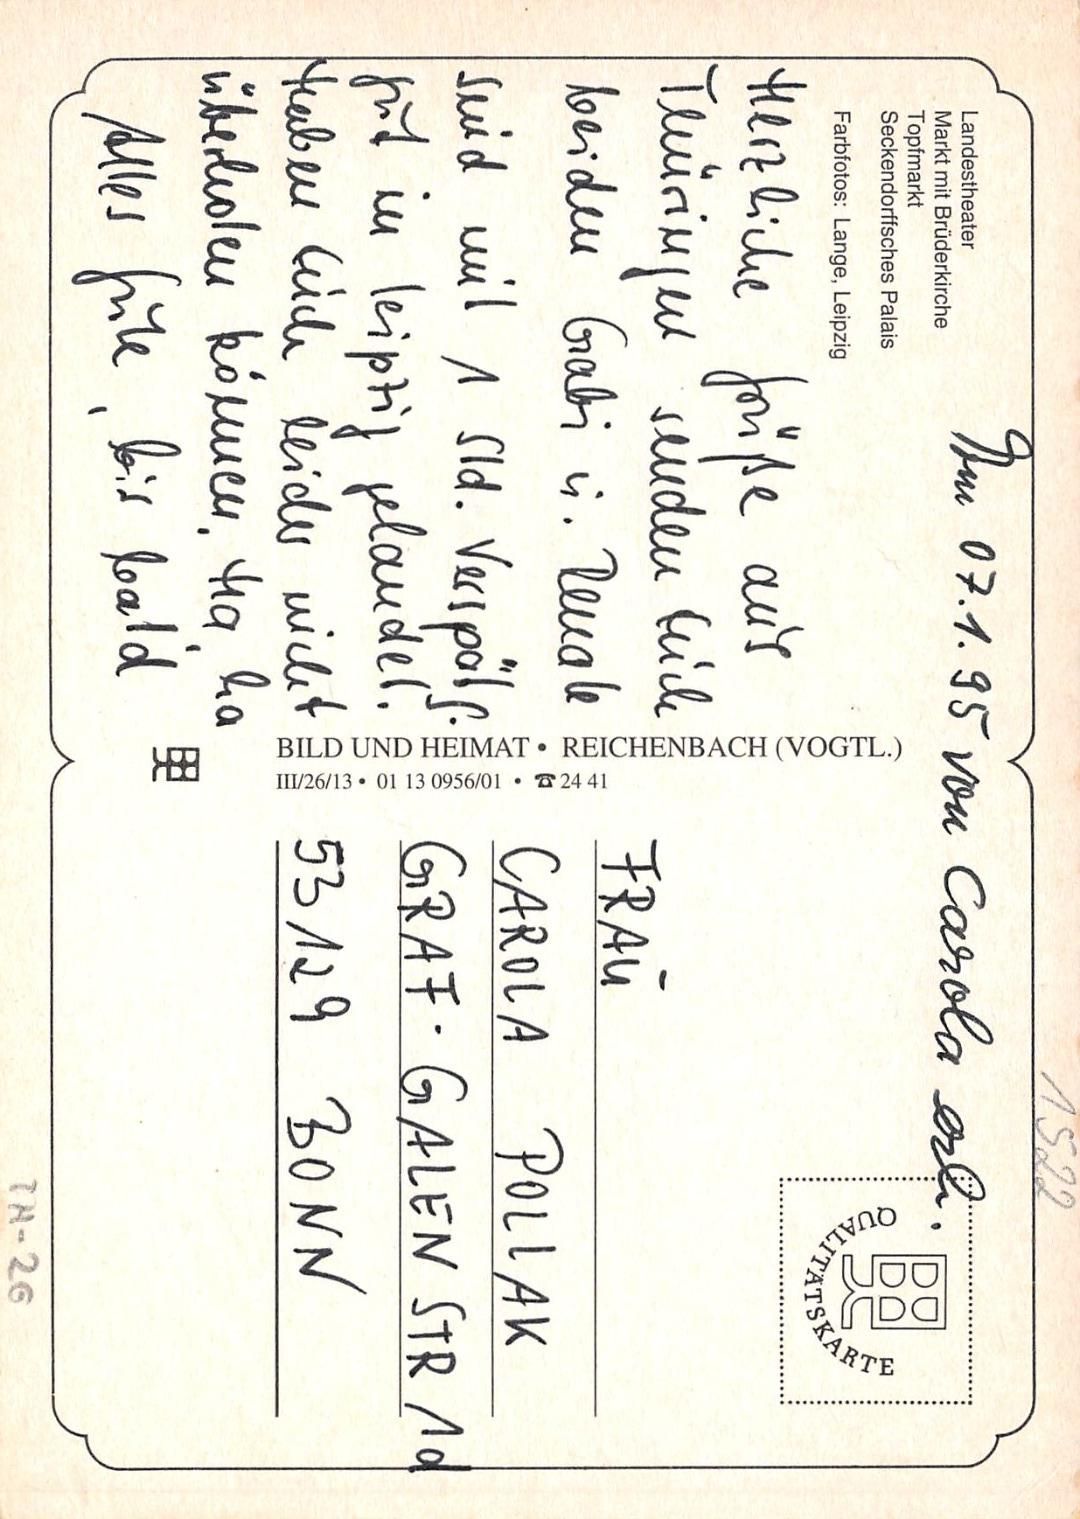 Landestheater
Markt mit Brüderkirche
Topfmarkt
Seckendorffsches Palais
Farbfotos: Lange, Leipzig
07.1.95 von Carola erh.
Herzliche Grüße aus
Thüringen senden Euch
beiden Gabi u. Renate
Sind mit 1 Std. Verspät.
gut in Leipzig gelandet.
Haben Euch leider nicht
überholen können. Ha ha
Alles Gute, bis bald
BILD UND HEIMAT • REICHENBACH (VOGTL.)
III/26/13 • 01 13 0956/01 • ☎ 24 41
FRAU
CAROLA POLLAK
GRAF-GALEN STR 1d
53129 BONN
QUALITÄTSKARTE
1522
TH-26